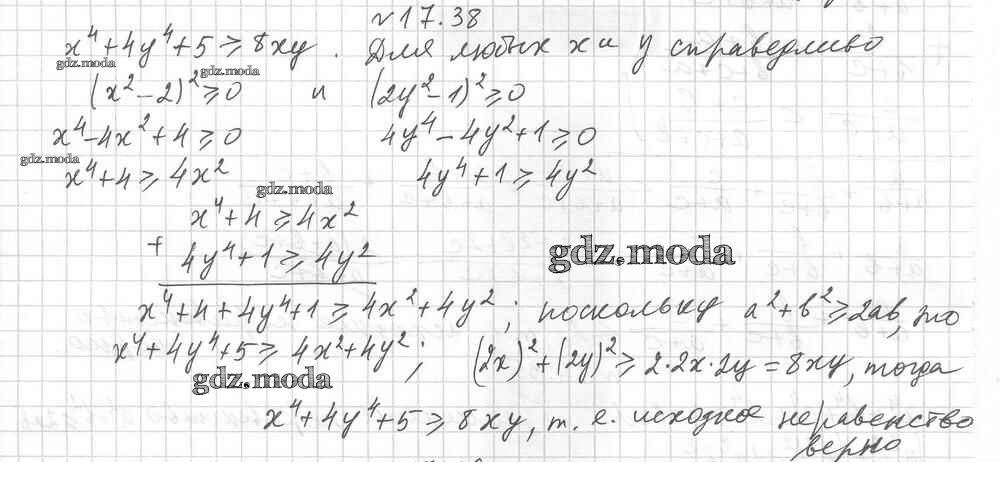 №17.38
x⁴+4y⁴+5 ≥ 8xy. Для любых x и y справедливо
gdz.moda
gdz.moda
(x²-2)² ≥ 0 и (2y²-1)² ≥ 0
x⁴-4x²+4 ≥ 0 4y⁴-4y²+1 ≥ 0
gdz.moda
x⁴+4 ≥ 4x² 4y⁴+1 ≥ 4y²
gdz.moda
x⁴+4 ≥ 4x²
+ 4y⁴+1 ≥ 4y²
gdz.moda
x⁴+4+4y⁴+1 ≥ 4x²+4y²; поскольку a²+b² ≥ 2ab, то
x⁴+4y⁴+5 ≥ 4x²+4y²; (2x)²+(2y)² ≥ 2·2x·2y = 8xy, тогда
gdz.moda
x⁴+4y⁴+5 ≥ 8xy, т. е. исходное неравенство
верно